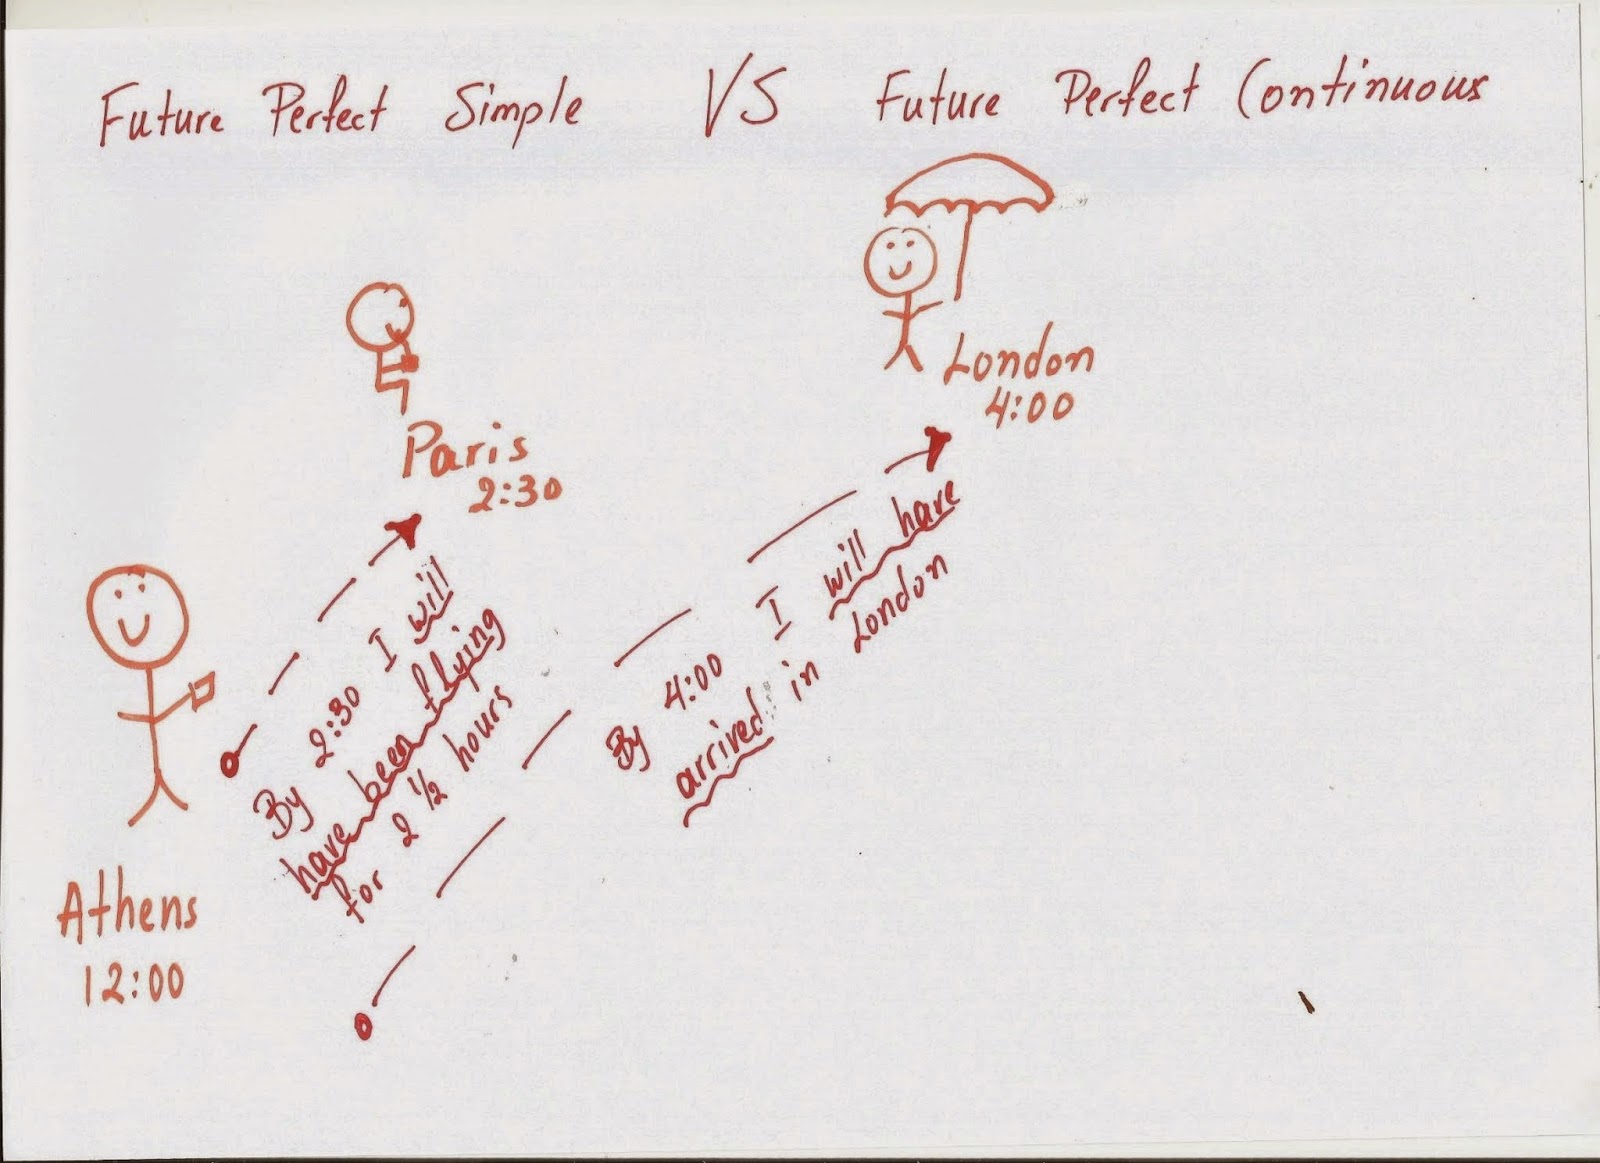 Future Perfect Simple VS Future Perfect Continuous
London
4:00
Paris
2:30
By 2:30 I will
have been flying
for 2 ½ hours
By 4:00 I will have
arrived in London
Athens
12:00